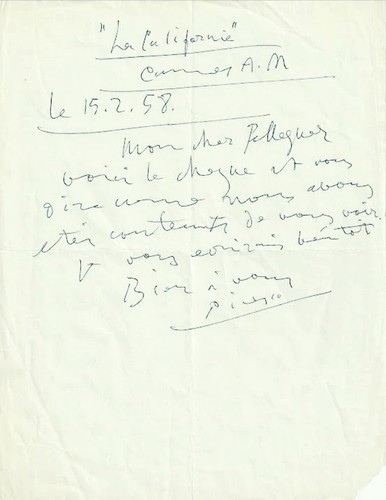 "La Californie"
Cannes A.M
le 15.2.58.
Mon cher Pellequer
voici le cheque et vous
dire comme nous avons
etés contents de vous voir.
Je vous ecrirais bientôt
Bien à vous
Picasso